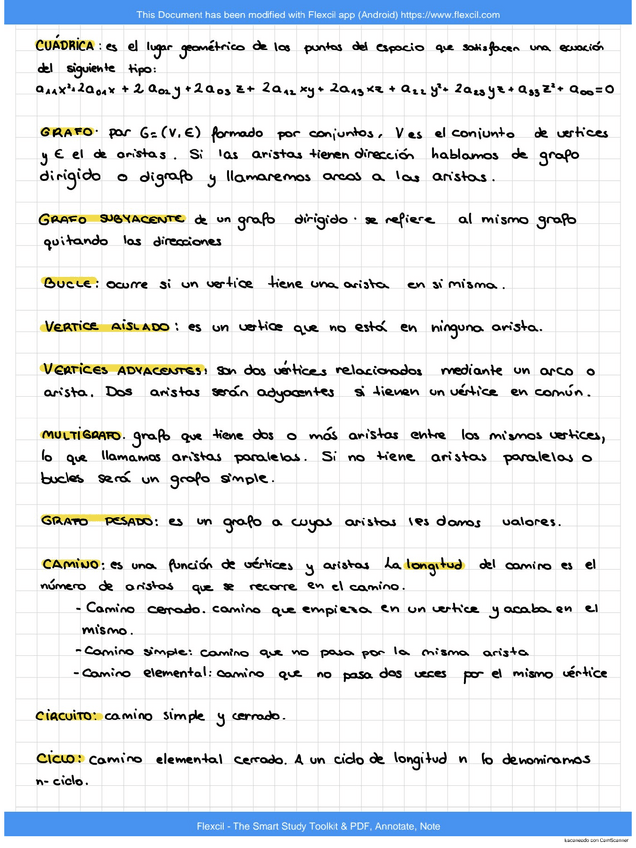 This Document has been modified with Flexcil app (Android) https://www.flexcil.com
CUÁDRICA: es el lugar geométrico de los puntos del espacio que satisfacen una ecuación
del siguiente tipo:
a₁₁x²+2a₀₁x + 2a₀₂y + 2a₀₃z + 2a₁₂xy + 2a₁₃xz + a₂₂y² + 2a₂₃yz + a₃₃z² + a₀₀=0
GRAFO. par G=(V,E) formado por conjuntos, V es el conjunto de vertices
y E el de aristas. Si las aristas tienen dirección hablamos de grafo
dirigido o digrafo y llamaremos arcos a las aristas.
GRAFO SUBYACENTE de un grafo dirigido. se refiere al mismo grafo
quitando las direcciones
BUCLE: ocurre si un vertice tiene una arista en si misma.
VERTICE AISLADO: es un vertice que no está en ninguna arista.
VERTICES ADYACENTES: son dos vértices relacionados mediante un arco o
arista. Dos aristas serán adyacentes si tienen un vértice en común.
MULTIGRAFO. grafo que tiene dos o más aristas entre los mismos vertices,
lo que llamamos aristas paralelas. Si no tiene aristas paralelas o
bucles será un grafo simple.
GRAFO PESADO: es un grafo a cuyas aristas les damos valores.
CAMINO: es una función de vértices y aristas La longitud del camino es el
número de aristas que se recorre en el camino.
- Camino cerrado. camino que empieza en un vertice y acaba en el
mismo.
- Camino simple: camino que no pasa por la misma arista
- Camino elemental: camino que no pasa dos veces por el mismo vértice
CIRCUITO: camino simple y cerrado.
CICLO: Camino elemental cerrado. A un ciclo de longitud n lo denominamos
n-ciclo.
Flexcil - The Smart Study Toolkit & PDF, Annotate, Note
Escaneado con CamScanner